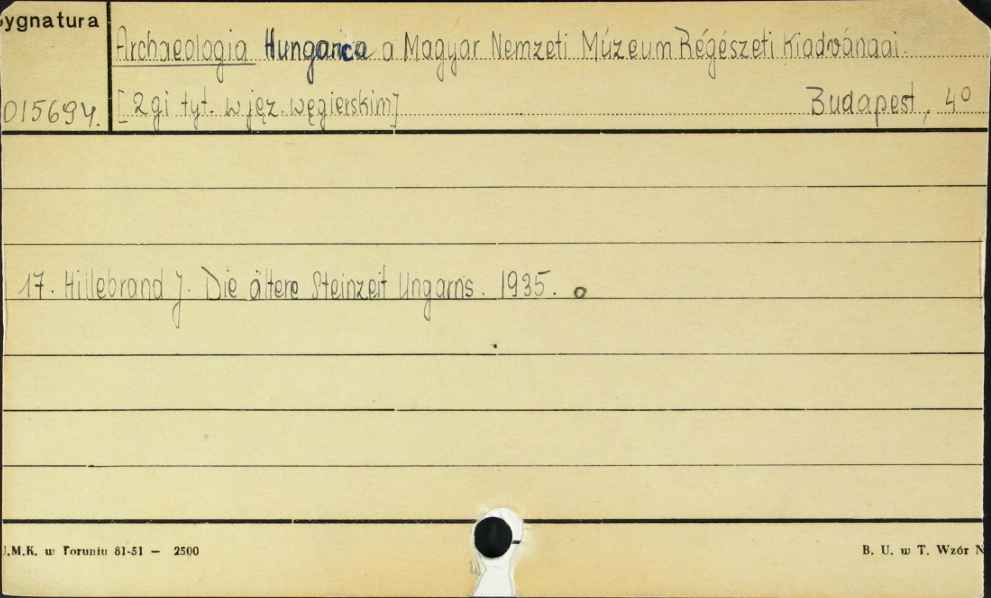 ygnatura
Archaeologia Hungarica a Magyar Nemzeti Múzeum Régészeti Kiadványai.
015694. [2gi tyt. w jęz. węgierskim] Budapest, 4°
17. Hillebrand J. Die ältere Steinzeit Ungarns. 1935.
.M.K. w Toruniu 81-51 — 2500 B. U. w T. Wzór N